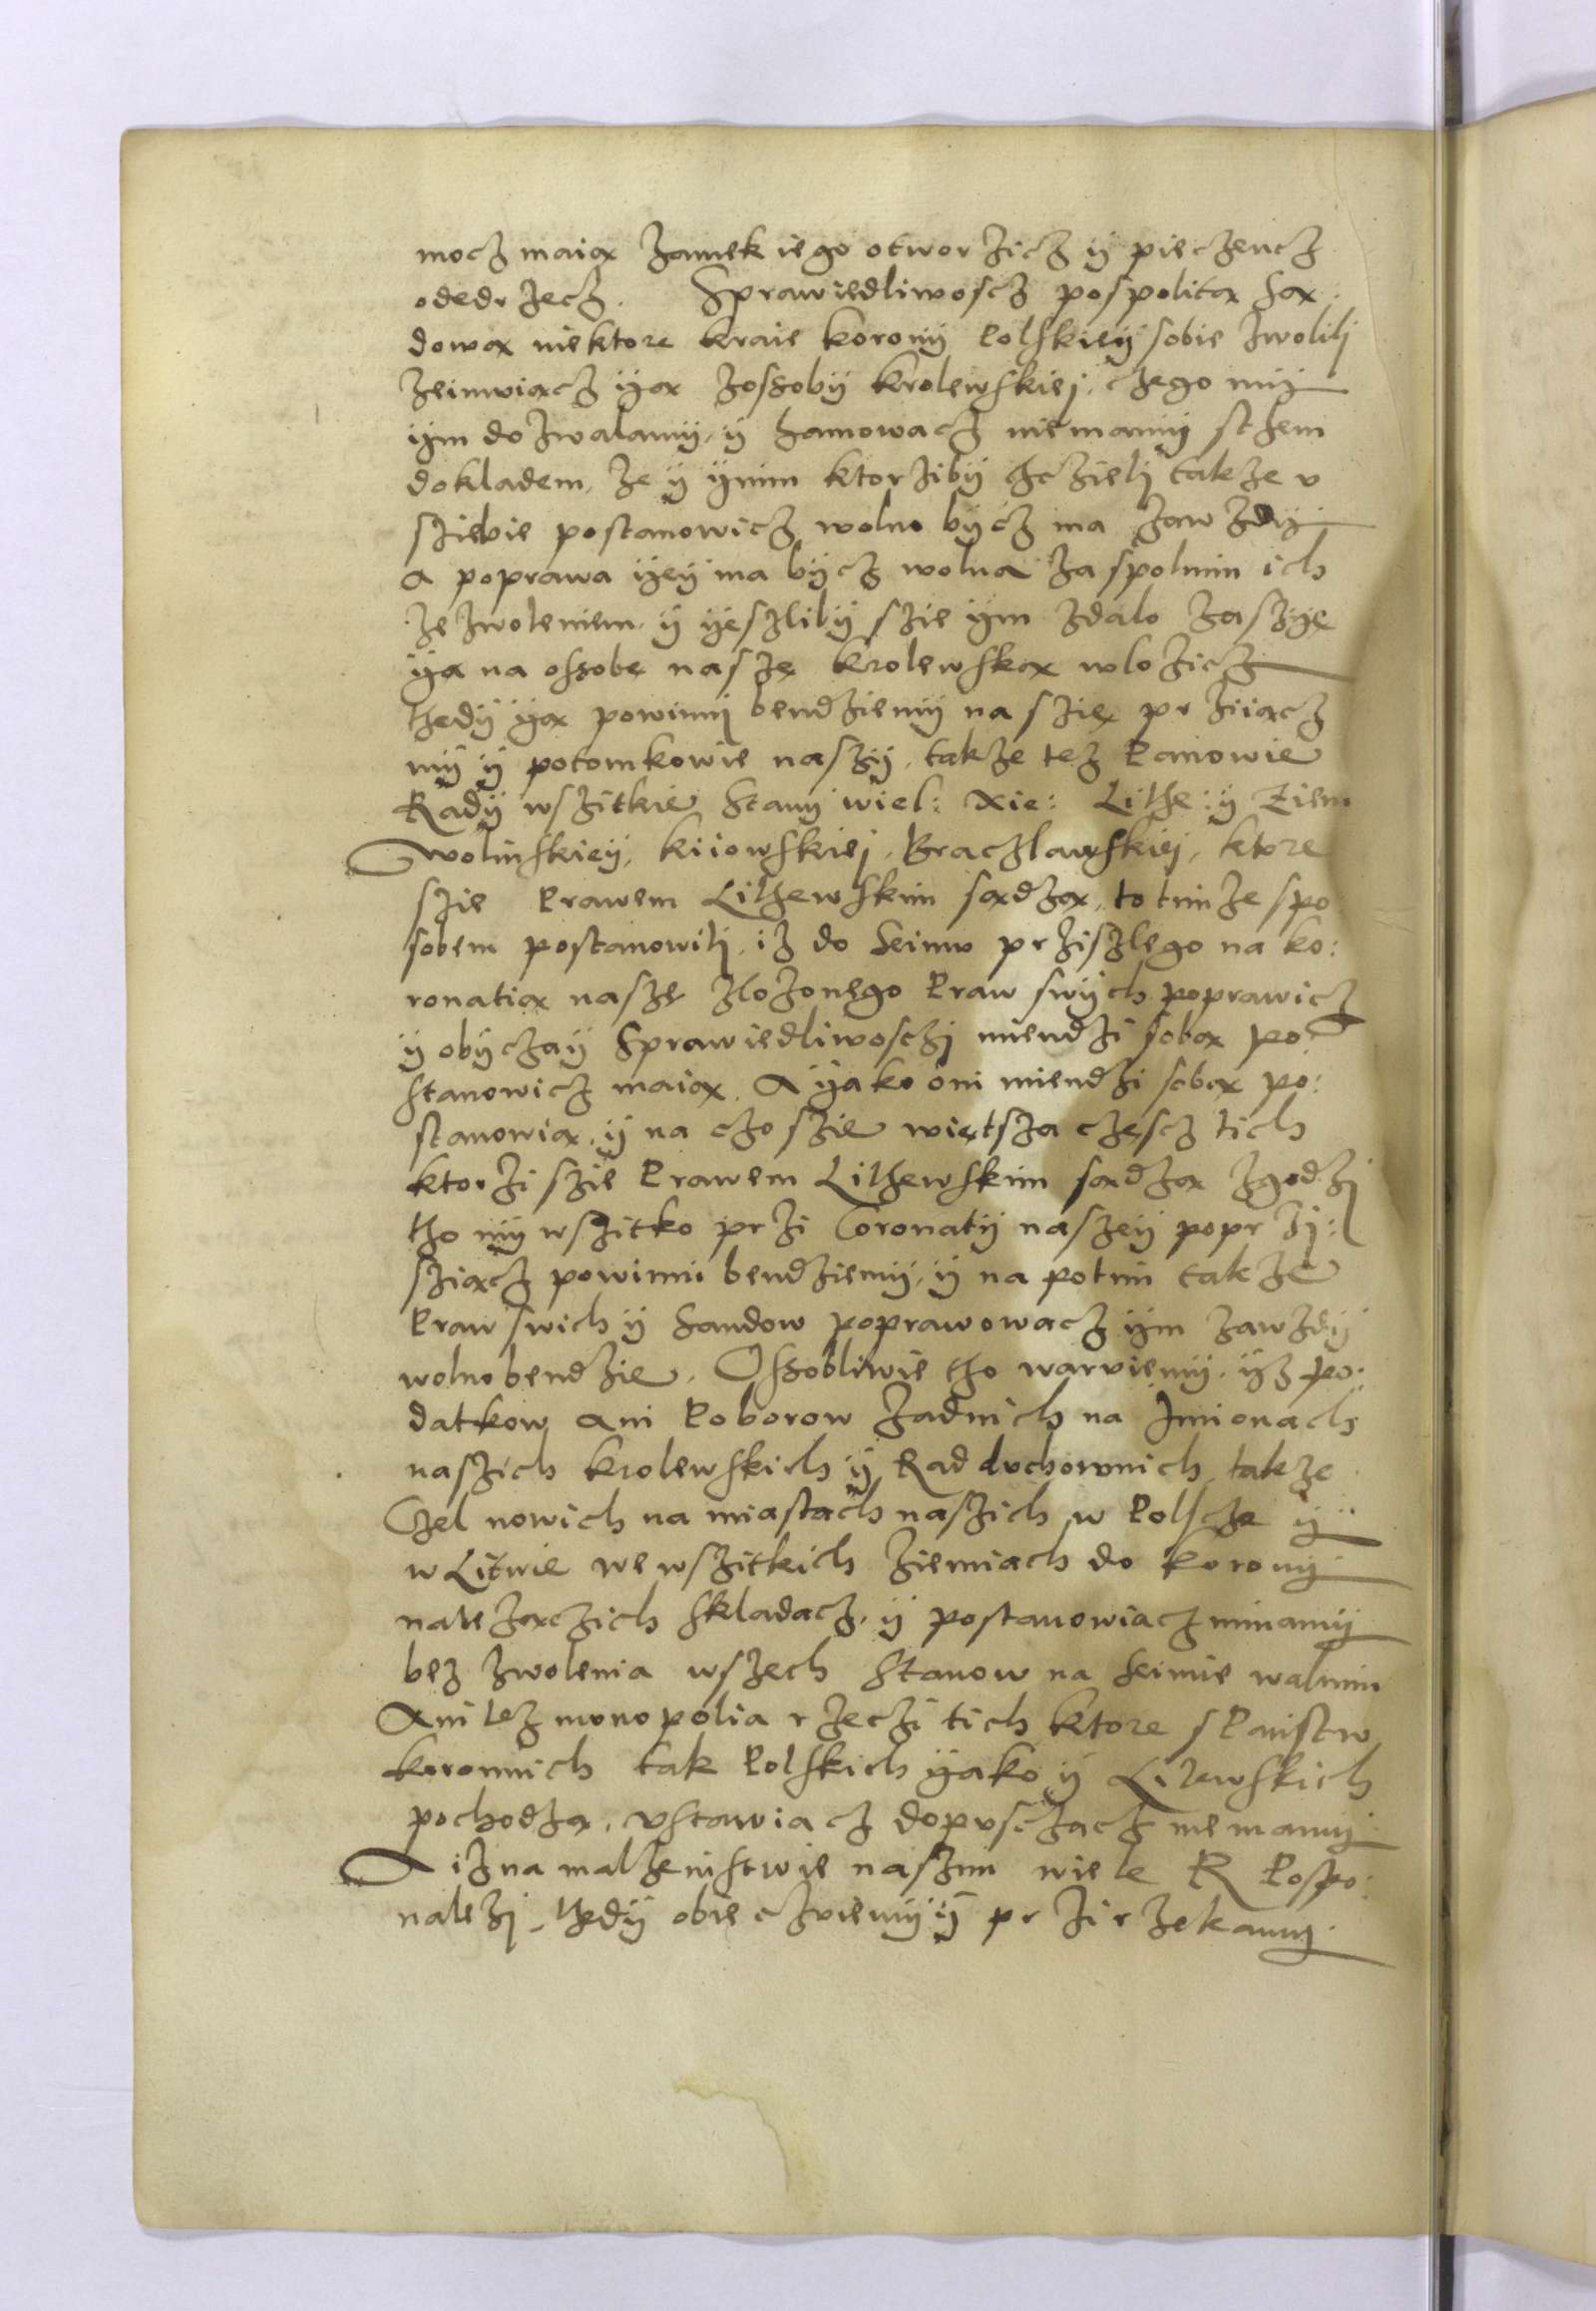 mocz maiąx zamek iego otworzicz ÿ pieczencz
odedrzecz. Sprawiedliwoscz pospolitą Są
dową niektore kraie koronÿ Polskieÿ sobie zwolilj
zeimviącz ÿą zossobÿ krolewskiej, czego mÿ
ÿm dozwalamÿ, ÿ hamowacz niemamÿ sthem
dokladem, że ÿ ÿnim ktorzibÿ chczielj także v
sziebie postanowicz wolno bÿcz ma zawzdÿ
a poprawa ÿeÿ ma bÿcz wolna za spolnim ich
zezwoleniem, ÿ ÿeszlibÿ szie ÿm zdalo zaszię
ÿą na ossobę naszę krolewską wlozicz
thedÿ ÿą powinnj bendziemÿ na szię prziiącz
mÿ ÿ potomkowie naszÿ, takze tez Panowie
Radÿ wszitkie Stanÿ wiel: Xie: Lithe: ÿ Ziem
wolinskieÿ, kiiowskiej, Braczlawskiej, ktore
szie Prawem Lithewskim sądzą, to timże spo
sobem postanowilj, iz do Seimv prziszlego na ko:
ronatią naszę zlozonego Praw swÿch poprawicz
ÿ obÿczaÿ Sprawiedliwosczj miendzi sobą po
stanowicz maią. A ÿako oni miendzi sobą po:
stanowią, ÿ na czo szie więtsza czescz tich
ktorzi szie Prawem Lithewskim sądzą zgodzj
tho mÿ wszitko przi Coronatÿ naszeÿ poprzj:
sziącz powinni bendziemÿ, ÿ na potim takze
Praw swich ÿ Sandow poprawowacz ÿm zawzdÿ
wolno bendzie. Ossobliwie tho warviemÿ, ÿz po:
datkow ani Poborow zadnich na Jmionach
naszich krolewskich ÿ Rad duchownich, takze
Czel nowich na miastach naszich w Polscze ÿ
w Litwie we wszitkich ziemiach do koronÿ
należączich skladacz, ÿ postanowiacz nimamÿ
bez zwolenia wszech Stanow na seimie walnim
Ani tez monopolia rzeczi tich ktore s Panstw
koronnich tak Polskich ÿako ÿ Litewskich
pochodzą, vstawiacz dopvsczacz nie mamÿ
A iz na malzenistwie naszim wiele R Pospo:
nalezj, thedÿ obieczviemÿ ÿ przirzekamÿ.